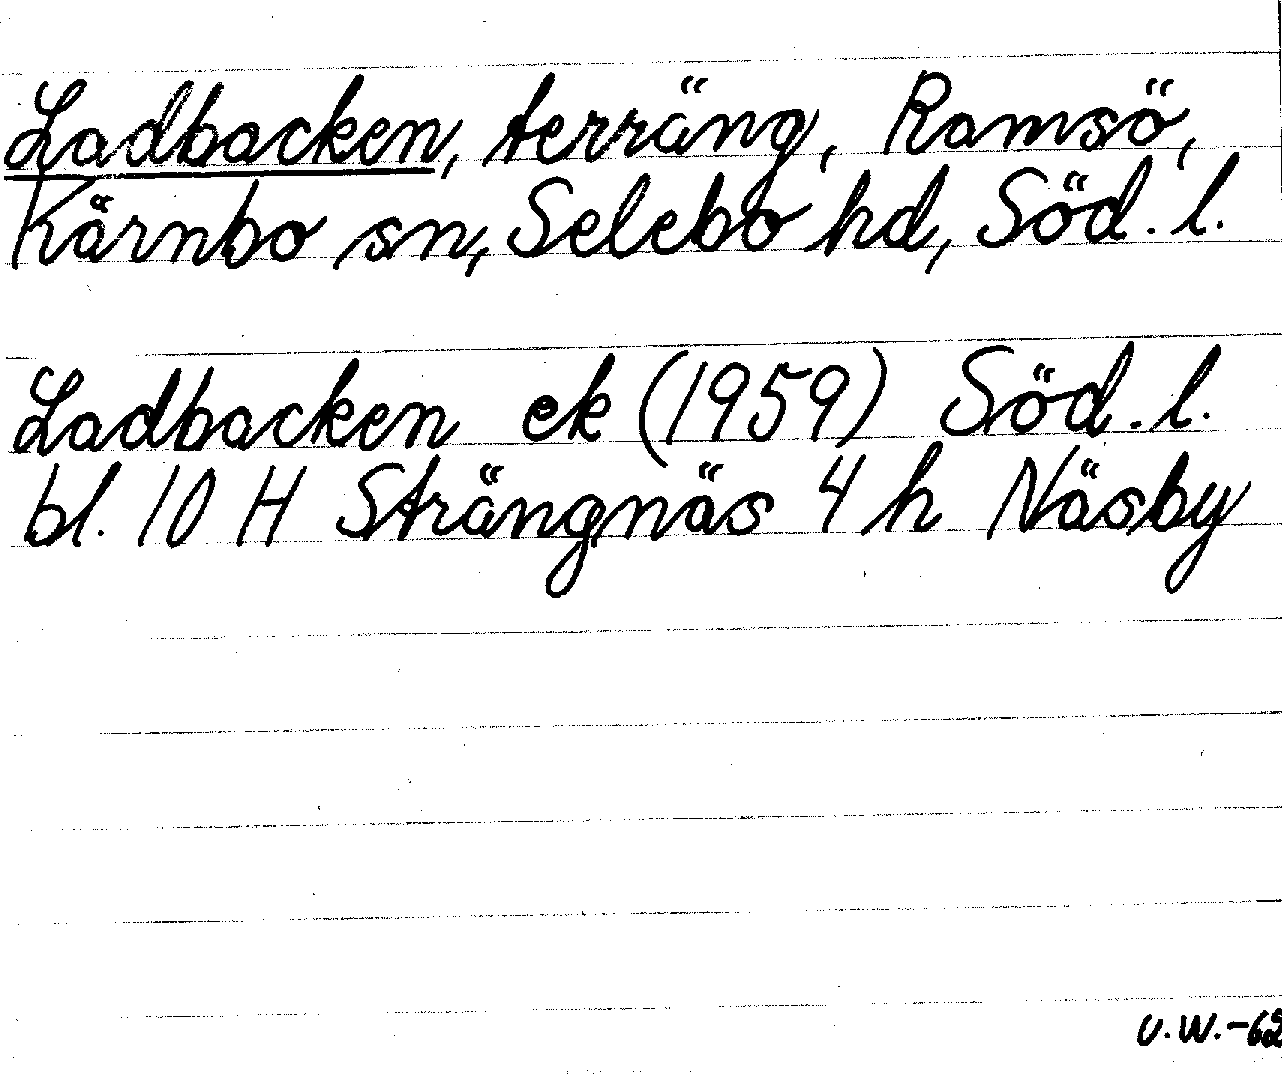 Ladbacken, terräng, Ramsö,
Kärnbo sn, Selebo hd, Söd. l.
Ladbacken ek (1959) Söd. l.
bl. 10 H Strängnäs 4 h Näsby
U.W.-62